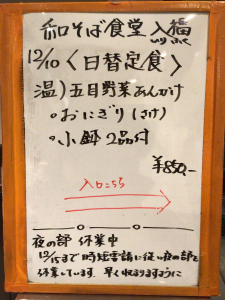 和そば食堂 入福
12/10 〈日替定食〉
温) 五目野菜あんかけ
・おにぎり (さけ)
・小鉢 2品付
¥850.-
入口こちら
夜の部 休業中
12/15まで 時短要請に従い夜の部を
休業しています 早く収まりますように